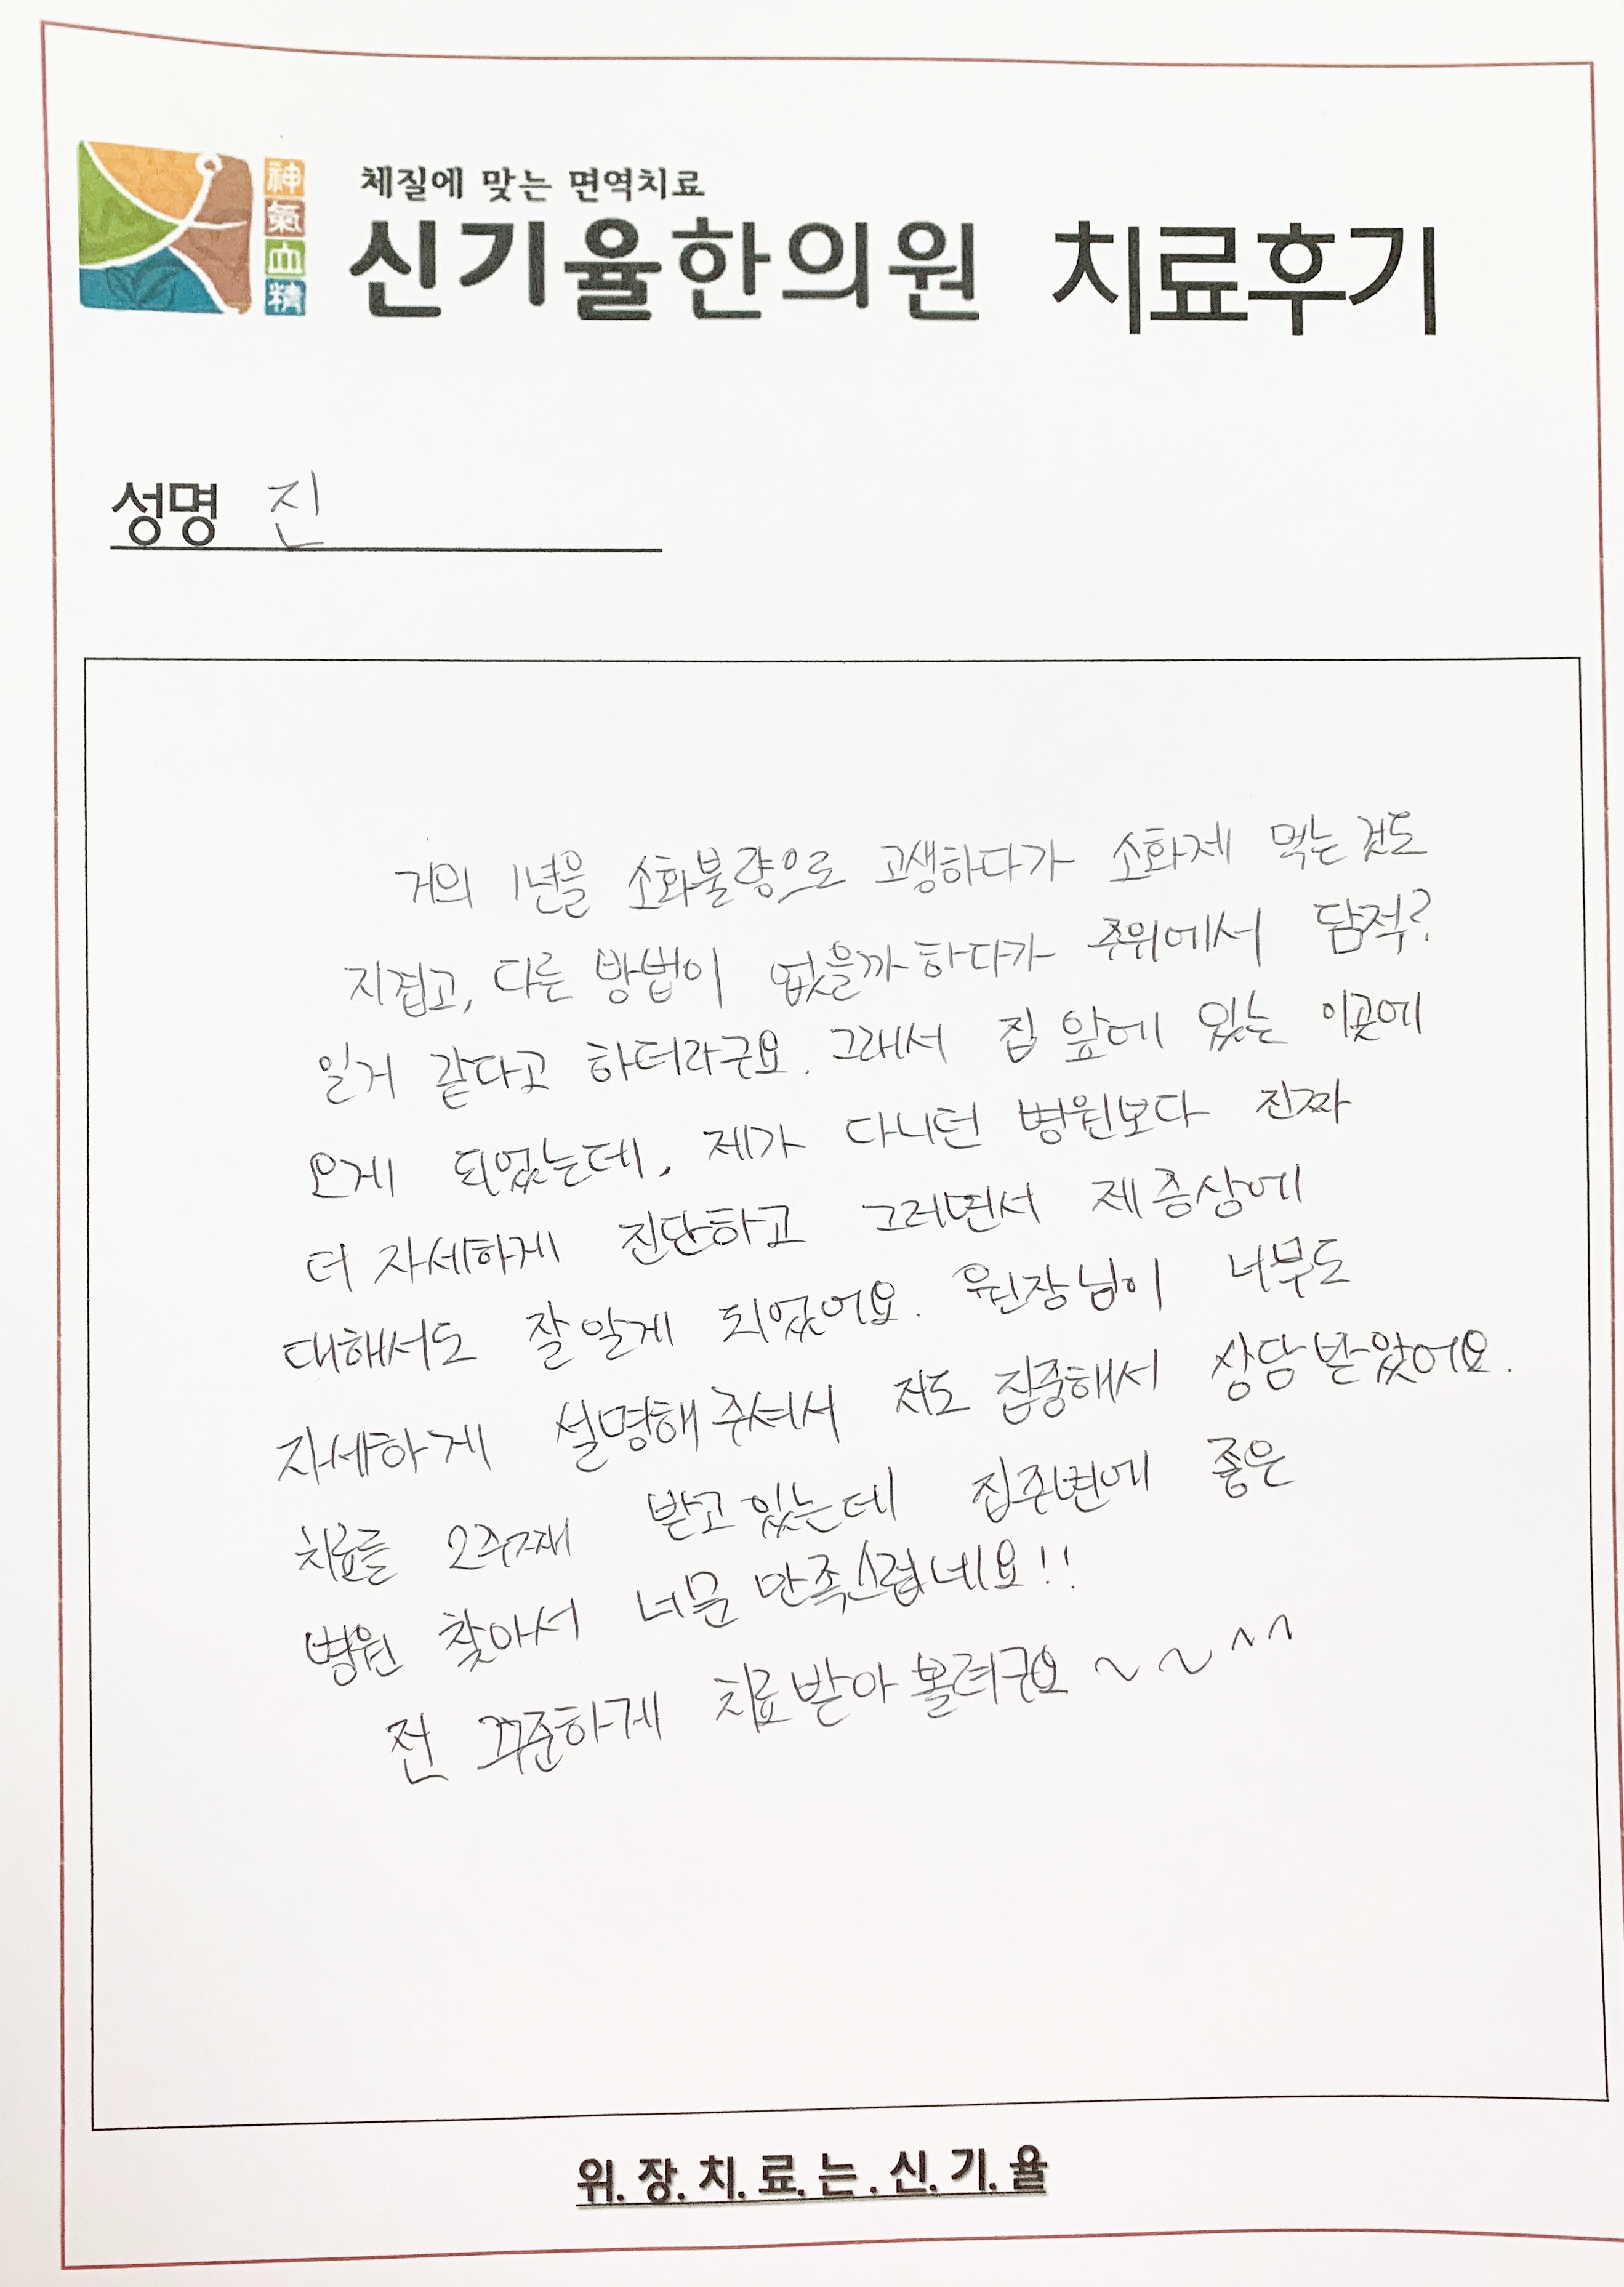 神氣血精
체질에 맞는 면역치료
신기율한의원 치료후기
성명 진
거의 1년을 소화불량으로 고생하다가 소화제 먹는것도
지겹고, 다른 방법이 없을까하다가 주위에서 담적?
일거 같다고 하더라구요. 그래서 집 앞에 있는 이곳에
오게 되었는데, 제가 다니던 병원보다 진짜
더 자세하게 진단하고 그러면서 제 증상에
대해서도 잘 알게 되었어요. 원장님이 너무도
자세하게 설명해주셔서 저도 집중해서 상담받았어요.
치료를 2주째 받고있는데 집주변에 좋은
병원 찾아서 너무 만족스럽네요!!
전 꾸준하게 치료받아볼려구요~~^^
위.장.치.료.는.신.기.율